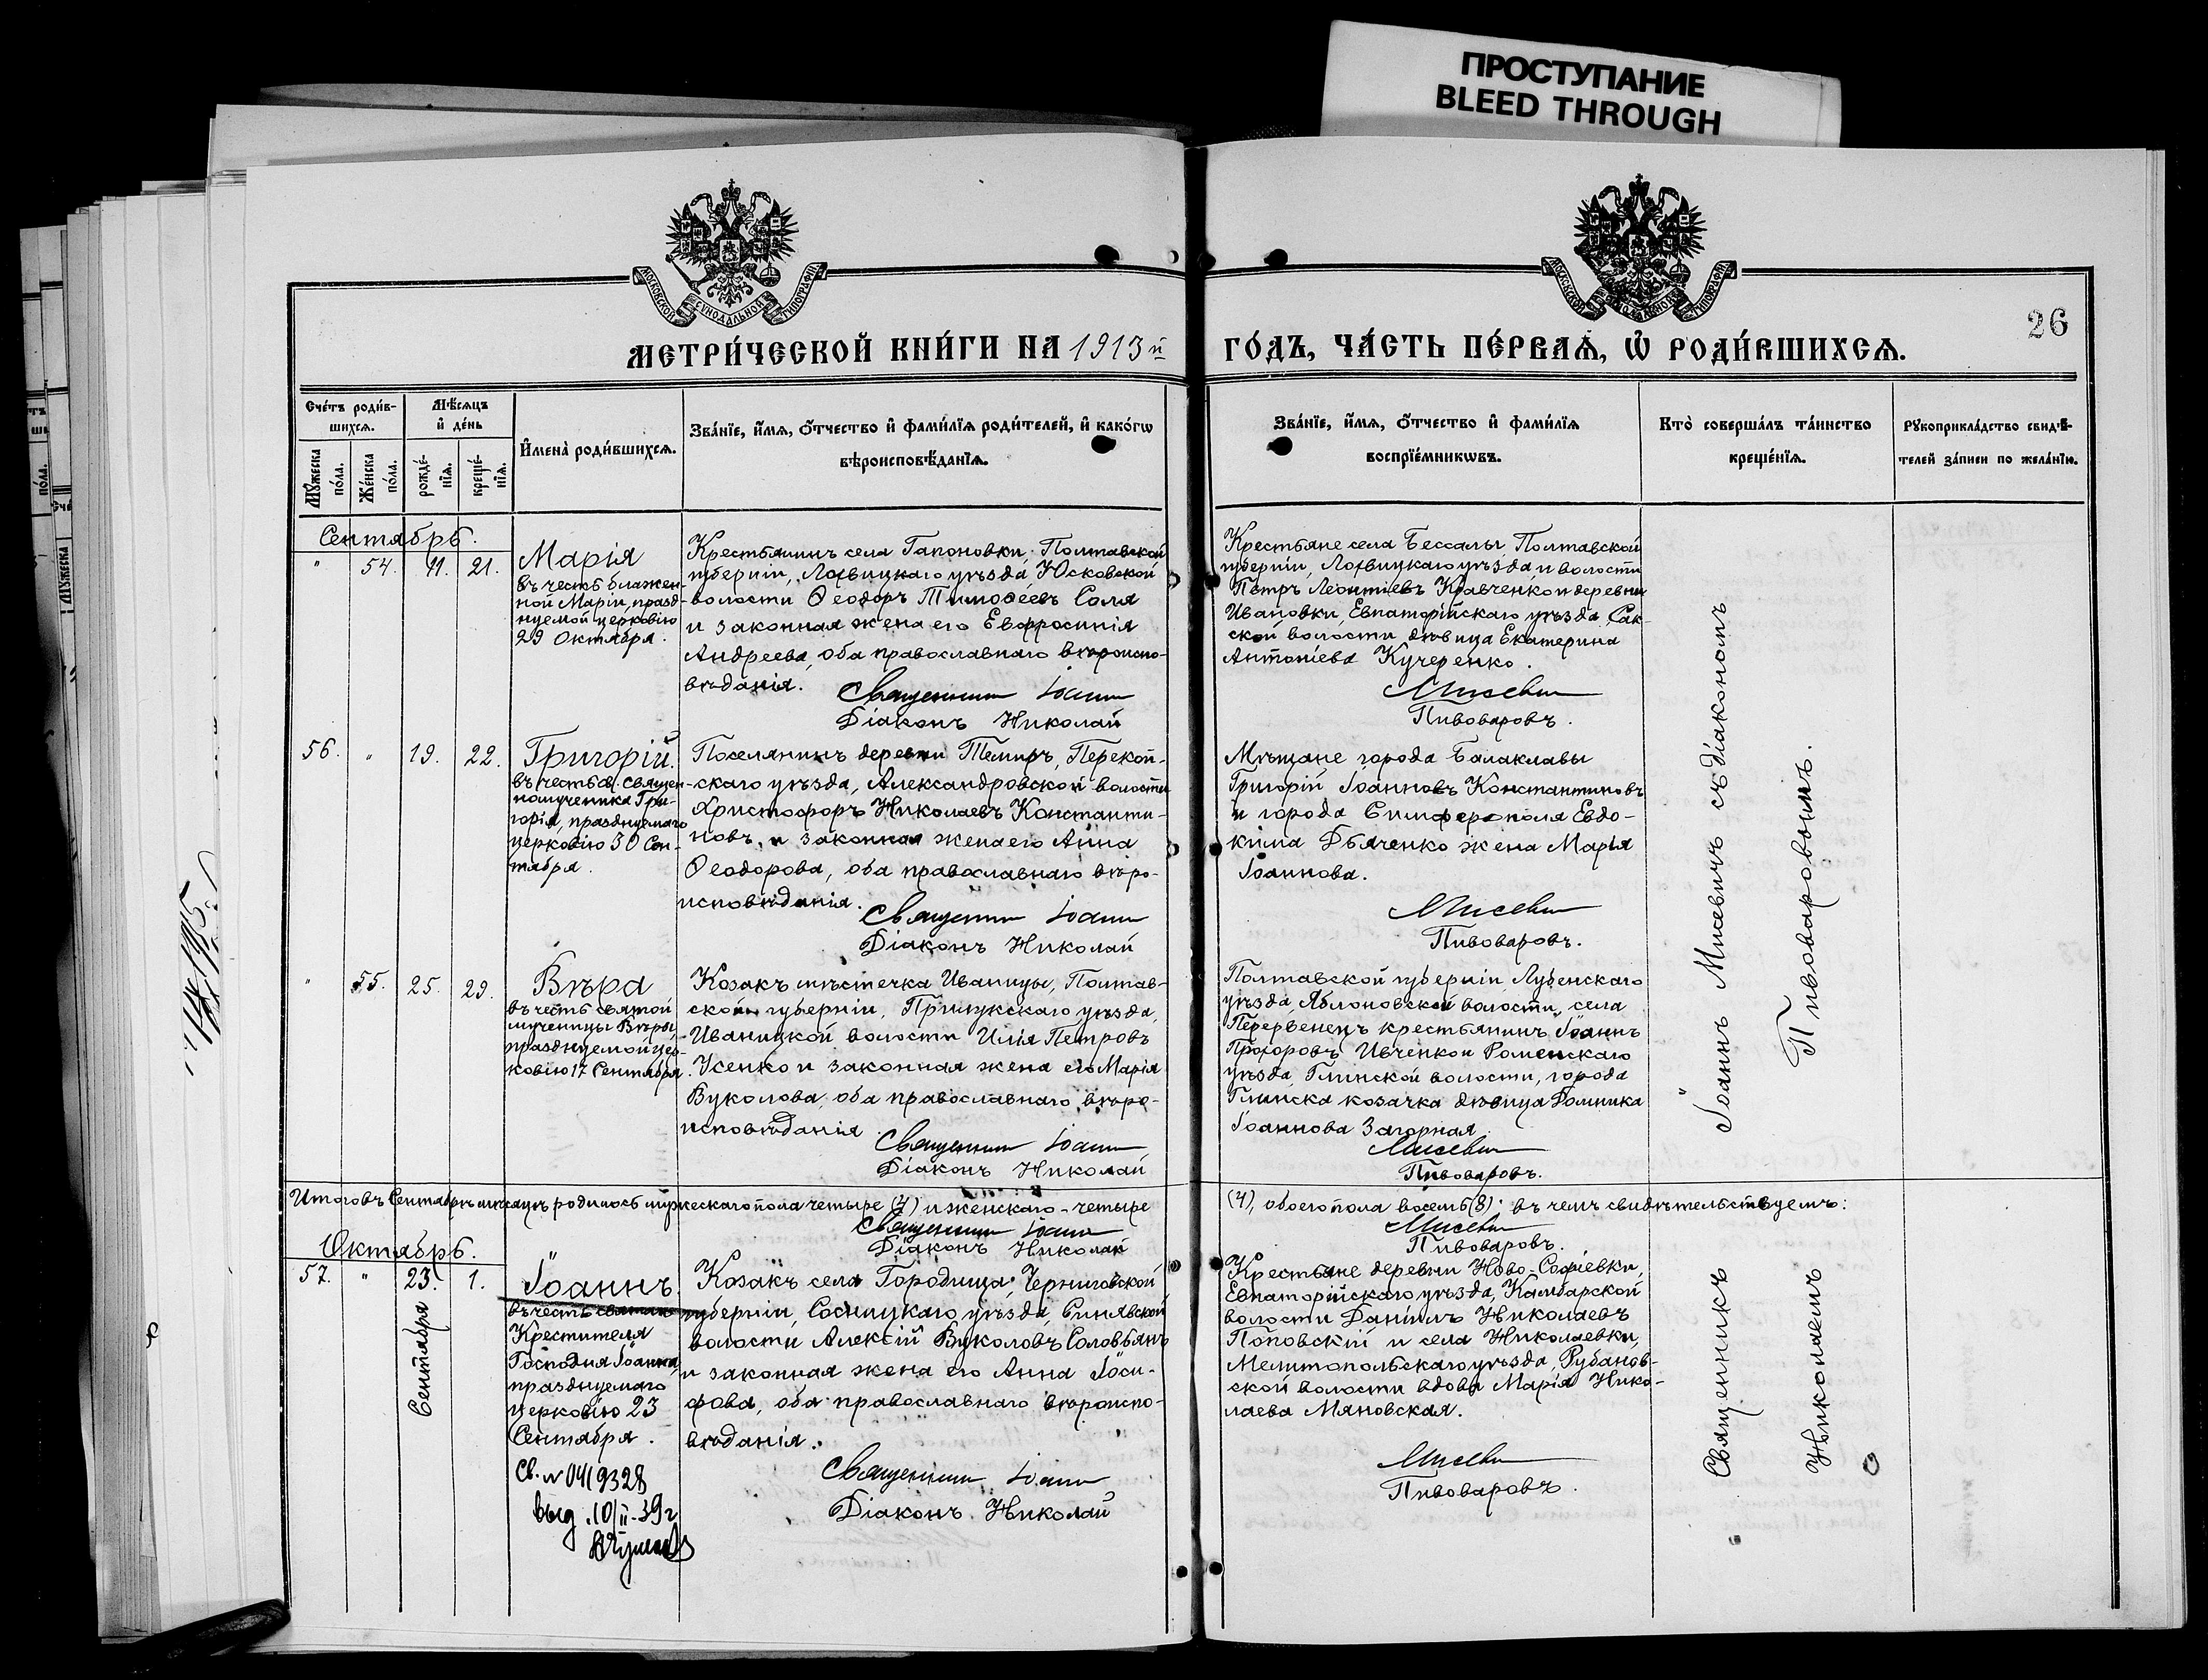 ПРОСТУПАНИЕ
BLEED THROUGH
МОСКОВСКОЙ СѴНОДАЛЬНОЙ ТИПОГРАФІИ
МОСКОВСКОЙ СѴНОДАЛЬНОЙ ТИПОГРАФІИ
26
МЕТРИ́ЧЕСКОЙ КНИ́ГИ НА 1913й ГО́ДЪ, ЧА́СТЬ ПЕ́РВАѦ, Ѡ҆ РОДИ́ВШИХСѦ.
Сче́тъ роди́в-
шихсѧ.
Мѣ́сѧцъ
и҆ де́нь
Мꙋ́жеска по́ла.
Же́нска по́ла.
рожде́-
нїѧ.
креще́-
нїѧ.
И҆мена̀ роди́вшихсѧ.
Зва́нїе, и҆́мѧ, ѻ҆́тчество и҆ фами́лїѧ роди́телей, и҆ како́гѡ
вѣроисповѣ́данїѧ.
Зва́нїе, и҆́мѧ, ѻ҆́тчество и҆ фами́лїѧ
воспрїе́мникѡвъ.
Кто̀ соверша́лъ та́инство
креще́нїѧ.
Рꙋкоприкла́дство свидѣ́-
телей за́писи по жела́нїю.
Сентябрь.
" 54. 11. 21.
Марія
въ честь блажен-
ной Маріи, празд-
нуемой церковію
29 Октября.
Крестьянинъ села Гапоновки Полтавской
губерніи, Лохвицкаго уѣзда, Юсковской
волости Ѳеодоръ Тимоѳеевъ Соля
и законная жена его Евфросинія
Андреева, оба православнаго вѣроиспо-
вѣданія.
Священникъ Іоаннъ
Діаконъ Николай
Крестьяне села Бессалы Полтавской
губерніи, Лохвицкаго уѣзда и волости
Петръ Леонтіевъ Кравченко и деревни
Ивановки, Евпаторійскаго уѣзда, Сак-
ской волости дѣвица Екатерина
Антоніева Кучеренко.
Мисевичъ
Пивоваровъ.
56. " 19. 22.
Григорій.
въ честь св. священ-
номученика Гри-
горія, празднуемаго
церковію 30 Сен-
тября.
Поселянинъ деревни Темиръ, Перекоп-
скаго уѣзда, Александровской волости
Христофоръ Николаевъ Константи-
новъ, и законная жена его Анна
Ѳеодорова, оба православнаго вѣро-
исповѣданія.
Священникъ Іоаннъ
Діаконъ Николай
Мѣщане города Балаклавы
Григорій Іоанновъ Константиновъ
и города Симферополя Евдо-
кима Дьяченко жена Марія
Іоаннова.
Мисевичъ
Пивоваровъ.
" 55. 25. 29.
Вѣра
въ честь святой
мученицы Вѣры,
празднуемой цер-
ковію 17 Сентября.
Козакъ мѣстечка Иваницы, Полтав-
ской губерніи, Прилукскаго уѣзда,
Иваницкой волости Илія Петровъ
Усенко и законная жена его Марія
Вуколова, оба православнаго вѣро-
исповѣданія
Священникъ Іоаннъ
Діаконъ Николай
Полтавской губерніи, Лубенскаго
уѣзда, Яблоновской волости, села
Перервенецъ крестьянинъ Іоаннъ
Прохоровъ Ивченко и Роменскаго
уѣзда, Глинской волости, города
Глинска козачка дѣвица Домника
Іоаннова Загорная
Мисевичъ
Пивоваровъ.
Іоаннъ Мисевичъ съ діакономъ
Пивоваровымъ.
Итого въ Сентябрѣ мѣсяцѣ родилось мужескаго пола четыре (4) и женскаго - четыре
(4), обоего пола восемь (8); въ чемъ свидѣтельствуемъ:
Священникъ Іоаннъ
Діаконъ Николай
Мисевичъ
Пивоваровъ.
Октябрь.
57. " 23. 1.
Сентября
Іоаннъ
въ честь святаго
Крестителя
Господня Іоанна,
празднуемаго
церковію 23
Сентября.
Св. N 0419328
выд. 10/II-39 г
Козакъ села Городища, Черниговской
губерніи, Сосницкаго уѣзда, Синявской
волости Алексій Вуколовъ Соловьянъ
и законная жена его Анна Іоси-
фова, оба православнаго вѣроиспо-
вѣданія.
Священникъ Іоаннъ
Діаконъ Николай
Крестьяне деревни Ново-Софіевки,
Евпаторійскаго уѣзда, Камбарской
волости Даніилъ Николаевъ
Поповскій и села Николаевки,
Мелитопольскаго уѣзда, Рубанов-
ской волости вдова Марія Нико-
лаева Мяновская.
Мисевичъ
Пивоваровъ.
Священникъ
Николаемъ